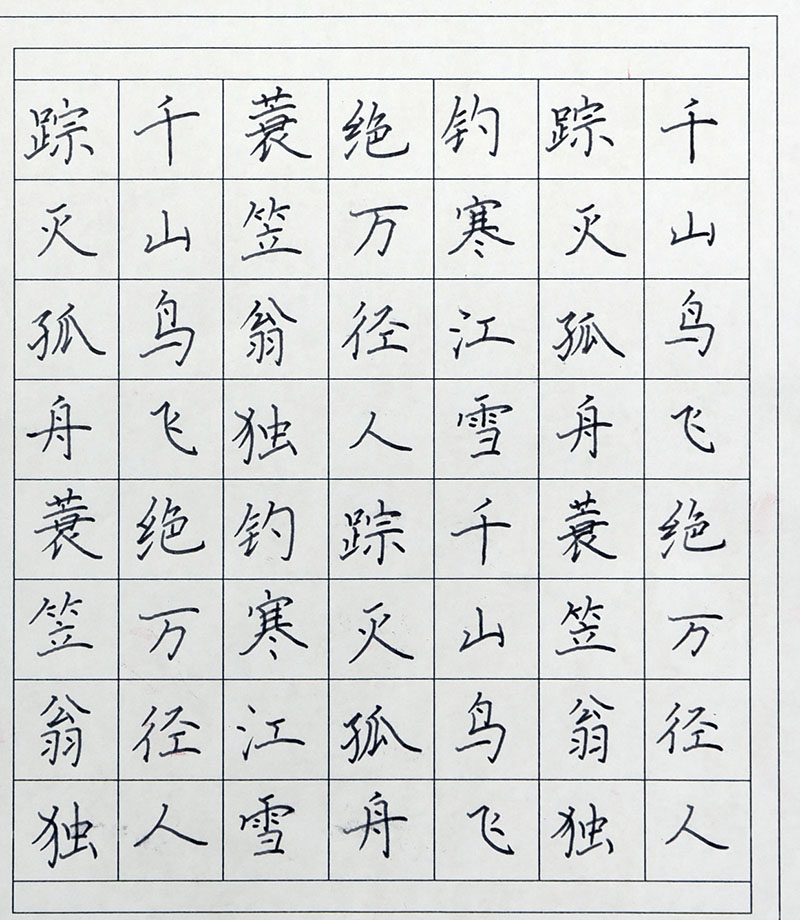 千山鸟飞绝万径人
踪灭孤舟蓑笠翁独
钓寒江雪千山鸟飞
绝万径人踪灭孤舟
蓑笠翁独钓寒江雪
千山鸟飞绝万径人
踪灭孤舟蓑笠翁独